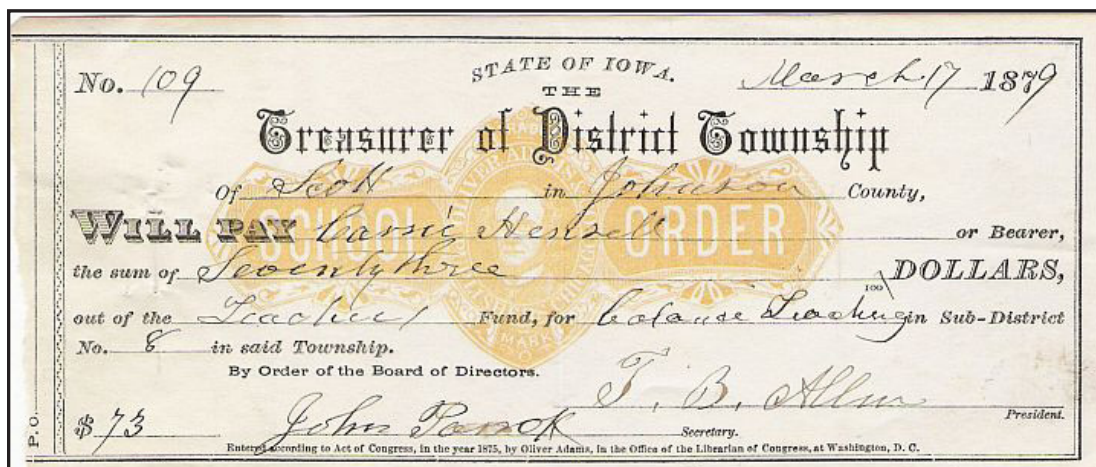 No. 109 STATE OF IOWA. March 17 1879
THE
Treasurer of District Township
Of Scott in Johnson County,
SCHOOL ORDER
WILL PAY Carrie Hensell or Bearer,
the sum of Seventy three 100 DOLLARS,
out of the Teachers Fund, for balance Teaching in Sub-District
No. 8 in said Township.
By Order of the Board of Directors.
T. B. Allen
President.
$ 73 John Secretary.
P.O.
Entered according to Act of Congress, in the year 1875, by Oliver Adams, in the Office of the Librarian of Congress, at Washington, D. C.